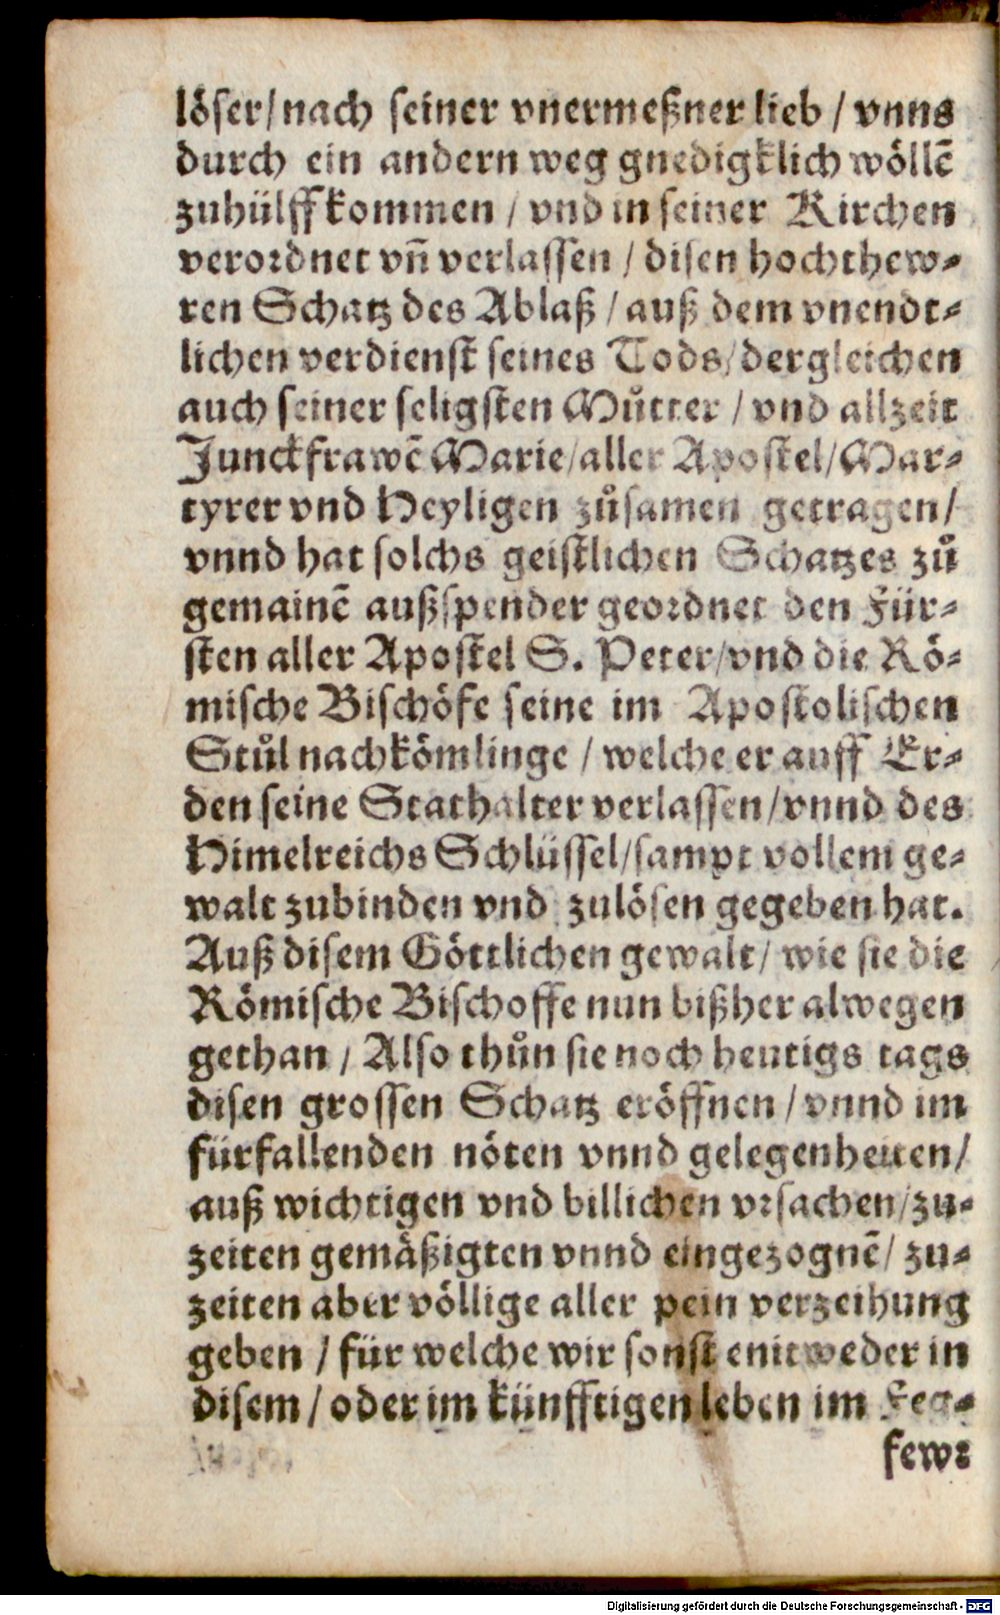 löser/nach seiner vnermeßner lieb / vnns
durch ein andern weg gnedigklich wöllẽ
zuhülff kommen / vnd in seiner Kirchen
verordnet vñ verlassen / disen hochthew-
ren Schatz des Ablaß / auß dem vnendt-
lichen verdienst seines Tods/dergleichen
auch seiner seligsten Můtter / vnd allzeit
Junckfrawẽ Marie/aller Apostel/Mar-
tyrer vnd Heyligen zůsamen getragen/
vnnd hat solchs geistlichen Schatzes zů
gemainẽ außspender geordnet den Für-
sten aller Apostel S. Peter/vnd die Rö-
mische Bischöfe seine im Apostolischen
Stůl nachkömlinge / welche er auff Er-
den seine Stathalter verlassen/vnnd des
Himelreichs Schlüssel/sampt vollem ge-
walt zubinden vnd zulösen gegeben hat.
Auß disem Göttlichen gewalt/ wie sie die
Römische Bischoffe nun bißher alwegen
gethan / Also thůn sie noch heutigs tags
disen grossen Schatz eröffnen / vnnd im
fürfallenden nöten vnnd gelegenheiten/
auß wichtigen vnd billichen vrsachen/zu-
zeiten gemäßigten vnnd eingezognẽ/ zu-
zeiten aber völlige aller pein verzeihung
geben / für welche wir sonst entweder in
disem / oder im künfftigen leben im Feg-
fewr
Digitalisierung gefördert durch die Deutsche Forschungsgemeinschaft - DFG